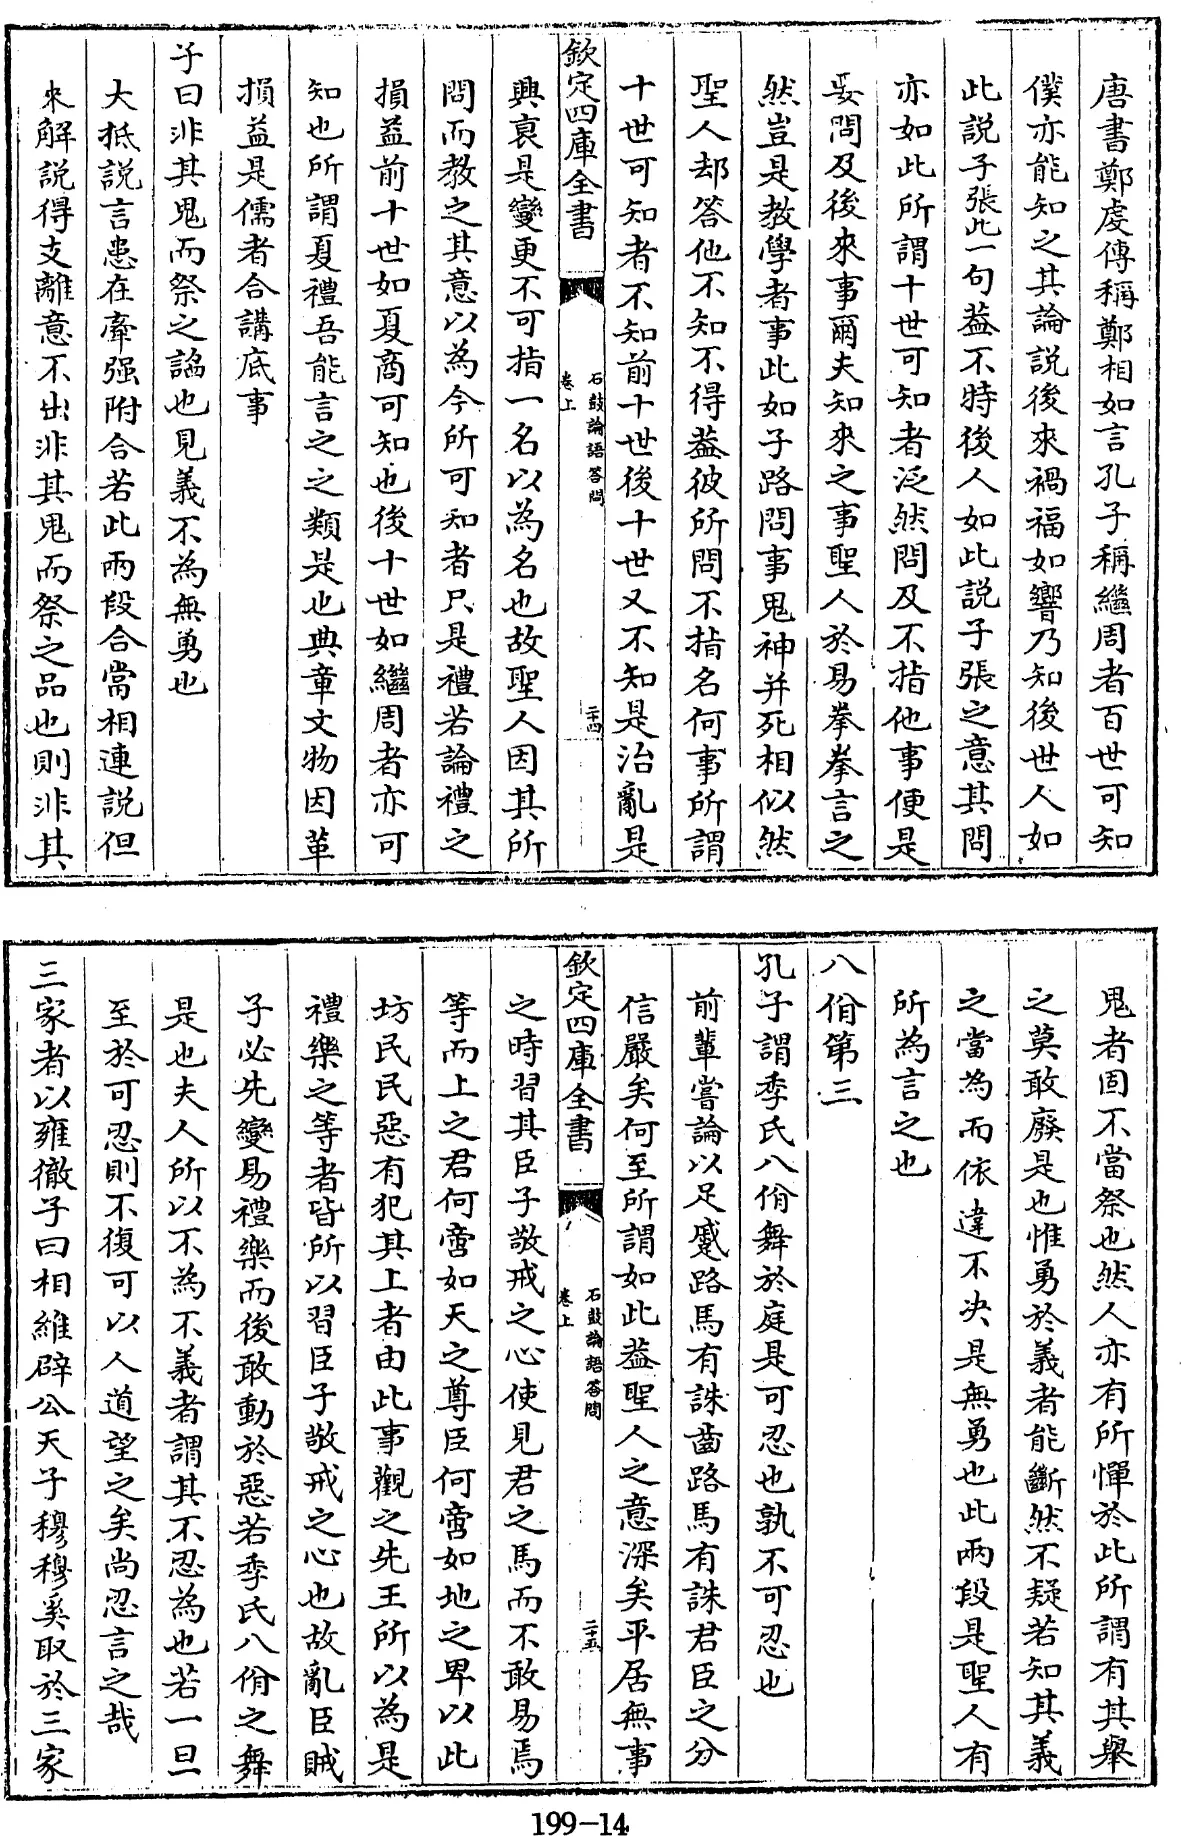 唐書鄭虔傳稱鄭相如言孔子稱繼周者百世可知
僕亦能知之其論說後來禍福如響乃知後世人如
此說子張此一句葢不特後人如此説子張之意其問
亦如此所謂十世可知者泛然問及不指他事便是
妄問及後來事爾夫知來之事聖人於易拳拳言之
然豈是教學者事此如子路問事鬼神并死相似然
聖人却答他不知不得葢彼所問不指名何事所謂
十世可知者不知前十世後十世又不知是治亂是
欽定四庫全書
石鼓論語答問
卷上
二十四
興衰是變更不可指一名以為名也故聖人因其所
問而教之其意以為今所可知者只是禮若論禮之
損益前十世如夏商可知也後十世如繼周者亦可
知也所謂夏禮吾能言之之類是也典章文物因革
損益是儒者合講底事
子曰非其鬼而祭之諂也見義不為無勇也
大抵說言患在牽强附合若此兩段合當相連說但
來解説得支離意不出非其鬼而祭之品也則非其
鬼者固不當祭也然人亦有所憚於此所謂有其舉
之莫敢廢是也惟勇於義者能斷然不疑若知其義
之當為而依違不決是無勇也此兩段是聖人有
所為言之也
八佾第三
孔子謂季氏八佾舞於庭是可忍也孰不可忍也
前軰嘗論以足蹙路馬有誅齒路馬有誅君臣之分
信嚴矣何至所謂如此葢聖人之意深矣平居無事
欽定四庫全書
石鼓論語答問
卷上
二十五
之時習其臣子敬戒之心使見君之馬而不敢易焉
等而上之君何啻如天之尊臣何啻如地之卑以此
坊民民惡有犯其上者由此事觀之先王所以為是
禮樂之等者皆所以習臣子敬戒之心也故亂臣賊
子必先變易禮樂而後敢動於惡若季氏八佾之舞
是也夫人所以不為不義者謂其不忍為也若一旦
至於可忍則不復可以人道望之矣尚忍言之哉
三家者以雍徹子曰相維辟公天子穆穆奚取於三家
199-14